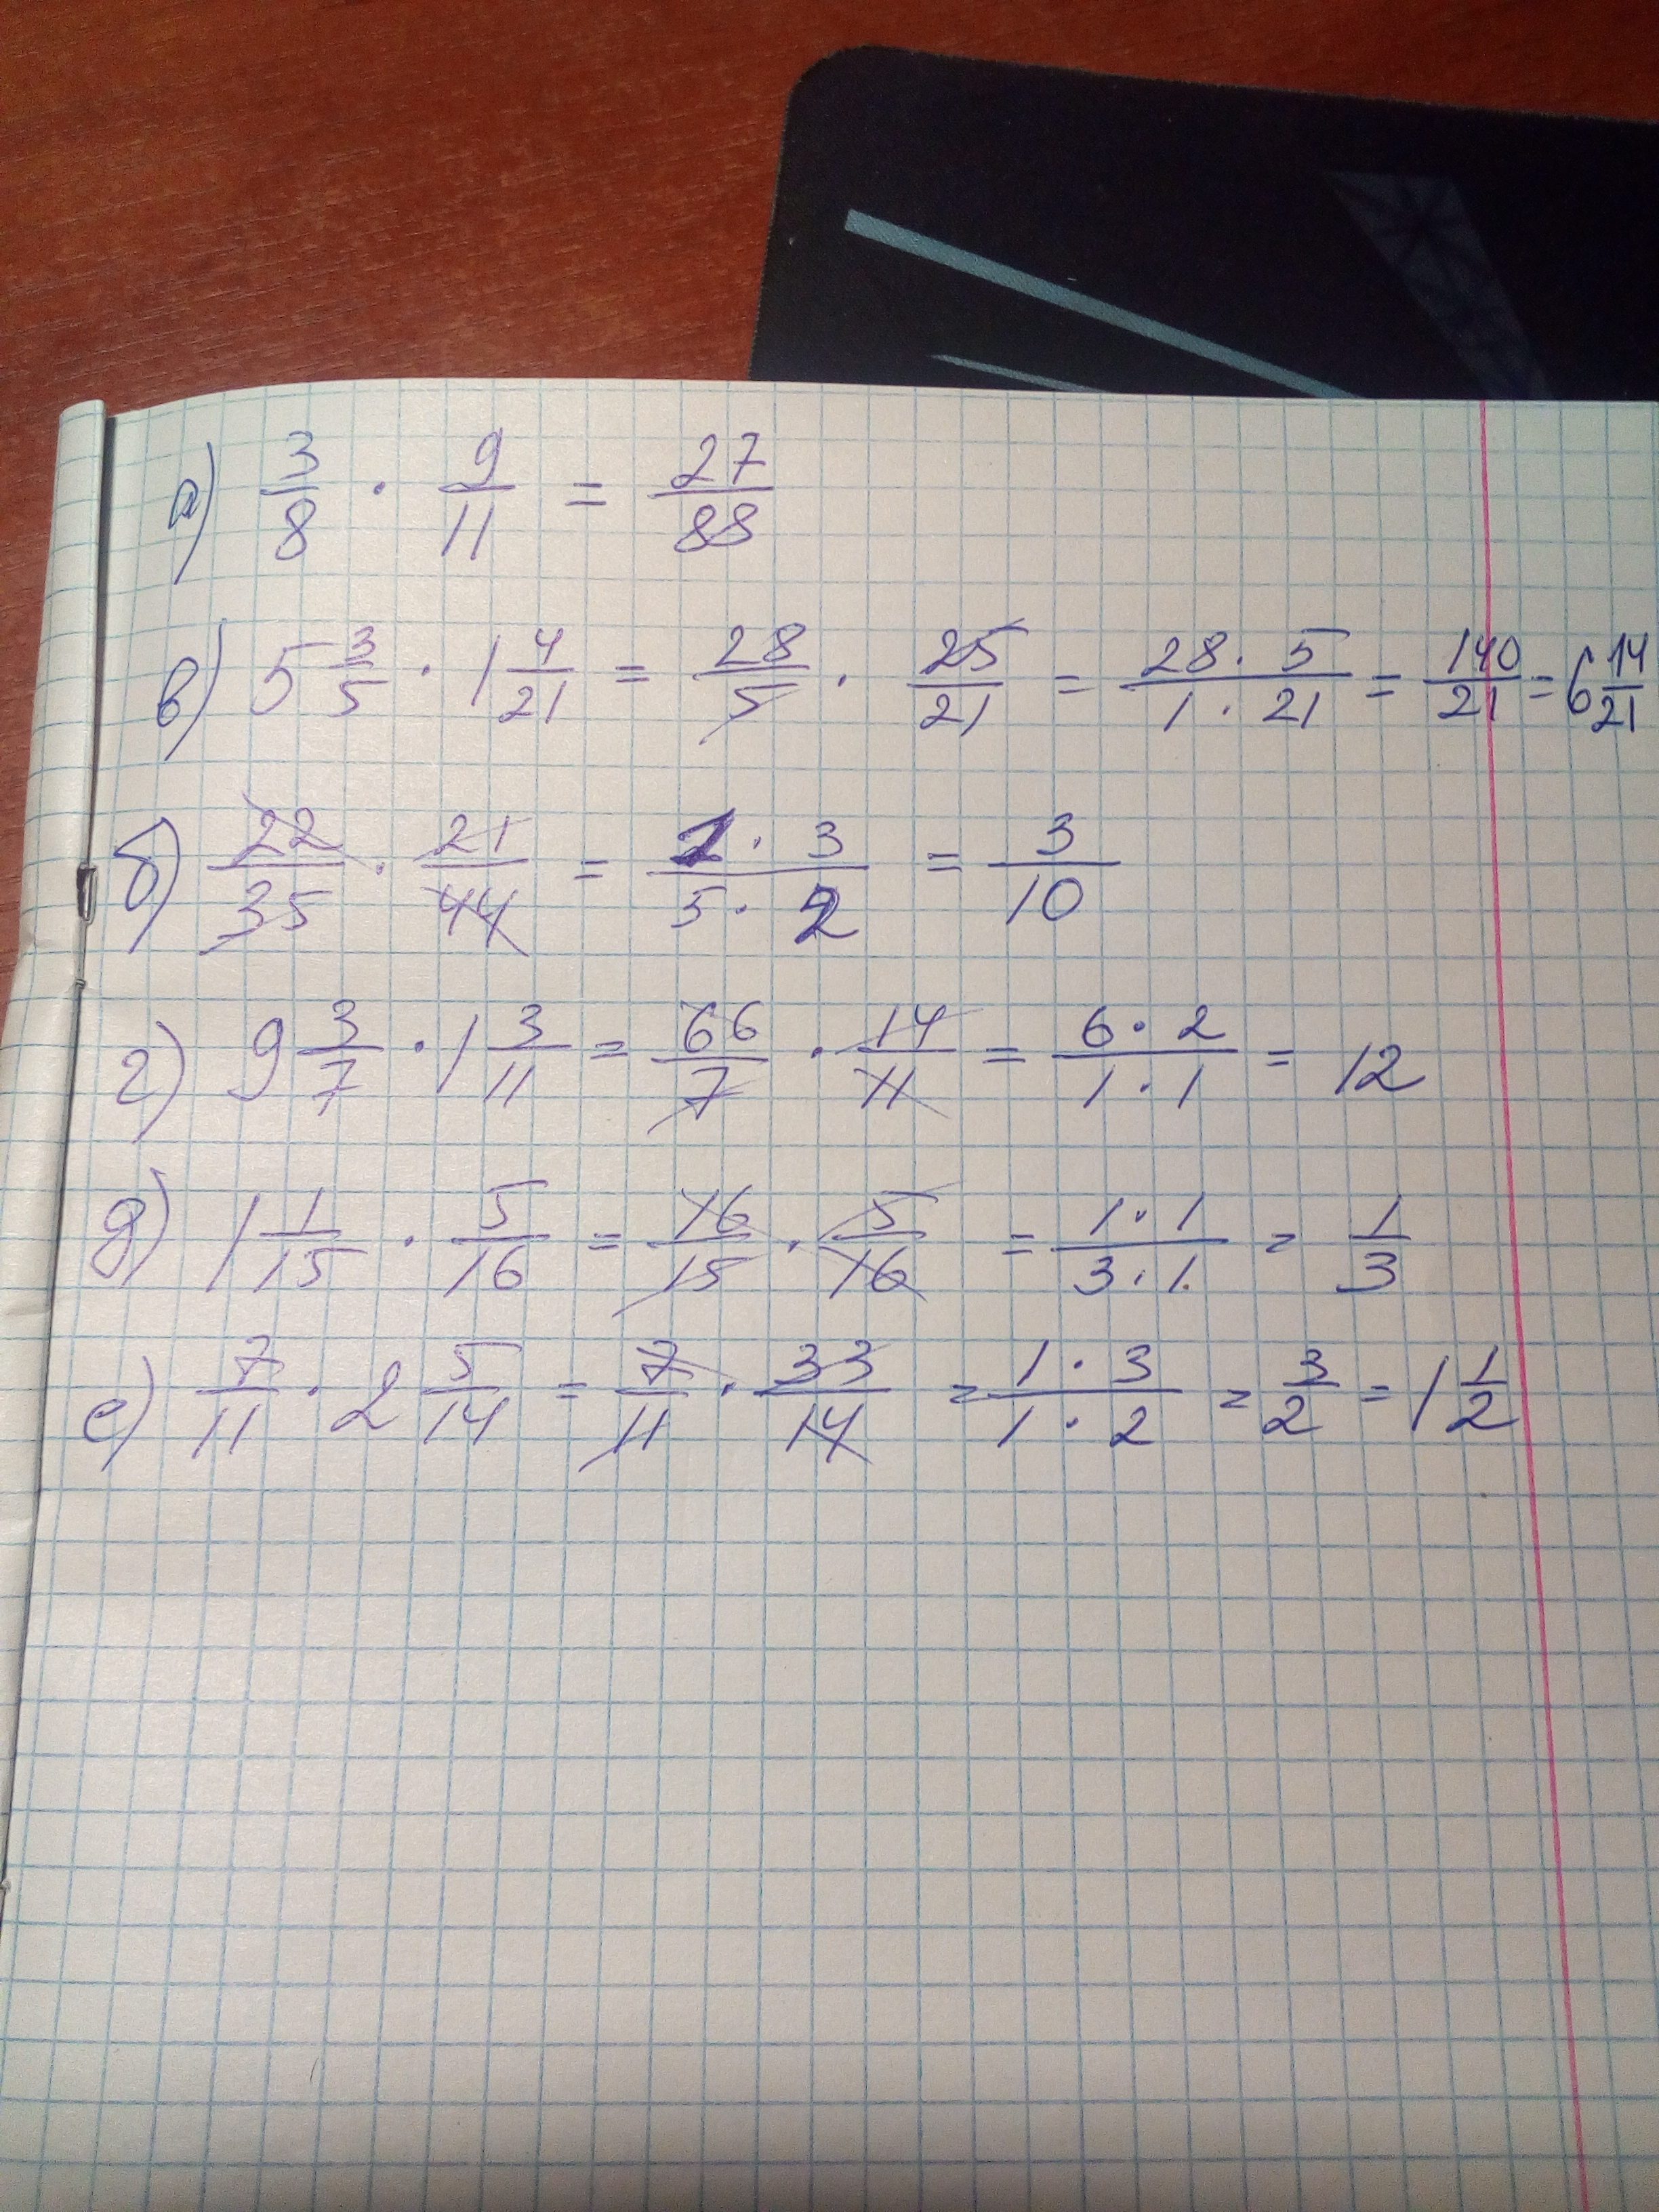 а) 3/8 · 9/11 = 27/88
в) 5 3/5 · 1 4/21 = 28/5 · 25/21 = 28 · 5/1 · 21 = 140/21 = 6 14/21
б) 22/35 · 21/44 = 1 · 3/5 · 2 = 3/10
г) 9 3/7 · 1 3/11 = 66/7 · 14/11 = 6 · 2/1 · 1 = 12
д) 1 1/15 · 5/16 = 16/15 · 5/16 = 1 · 1/3 · 1 = 1/3
е) 7/11 · 2 5/14 = 7/11 · 33/14 = 1 · 3/1 · 2 = 3/2 = 1 1/2